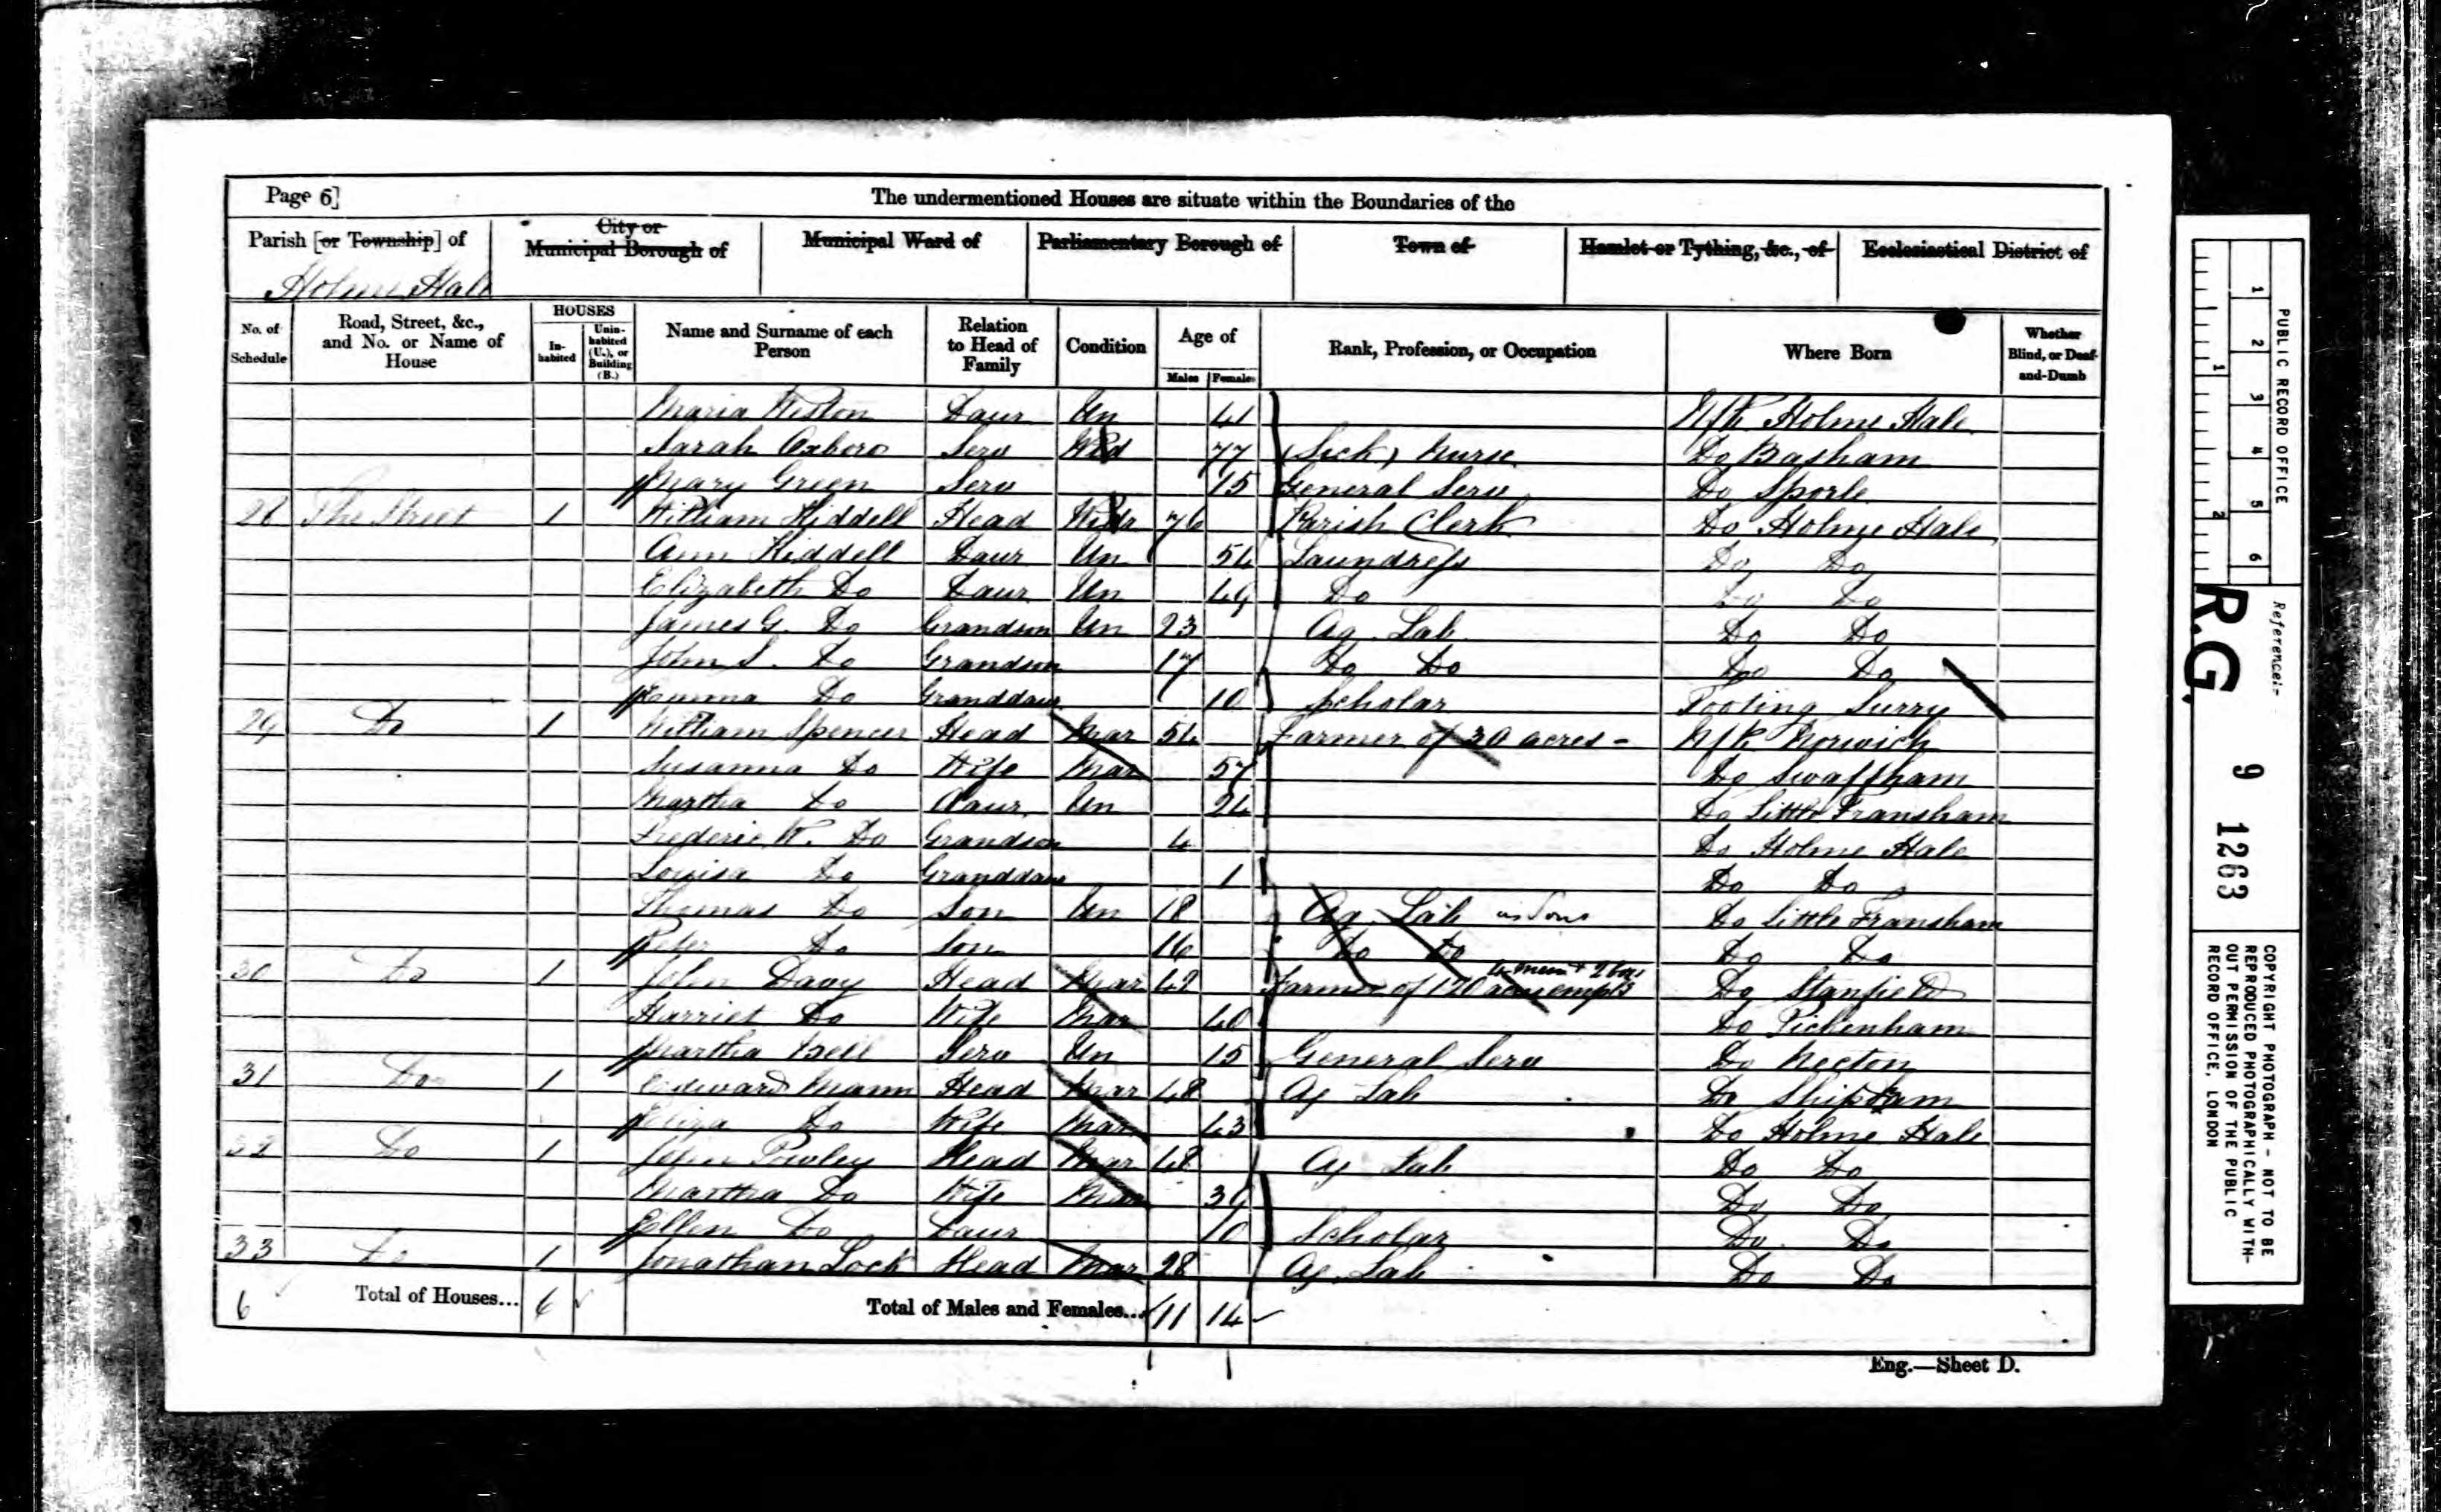 Page 6]
The undermentioned Houses are situate within the Boundaries of the
Parish [or Township] of
City or Municipal Borough of
Municipal Ward of
Parliamentary Borough of
Town of
Hamlet or Tything, &c., of
Ecclesiastical District of
Holme Hale
No. of Schedule
Road, Street, &c., and No. or Name of House
HOUSES
In-habited
Unin-habited (U.), or Building (B.)
Name and Surname of each Person
Relation to Head of Family
Condition
Age of
Males
Females
Rank, Profession, or Occupation
Where Born
Whether Blind, or Deaf-and-Dumb
Maria Weston Daur Un 41 Nfk Holme Hale
Sarah Oxboro Serv Wid 77 (Sick) Nurse Do Basham
Mary Green Serv 15 General Serv Do Sporle
28 The Street 1 William Kiddell Head Widr 76 Parish Clerk Do Holme Hale
Ann Kiddell Daur Un 54 Laundress Do Do
Elizabeth Do Daur Un 49 Do Do Do
James G. Do Grandson Un 23 Ag. Lab Do Do
John S. Do Grandson 17 Do Do Do Do
Emma Do Granddaur 10 Scholar Tooting Surry
29 Do 1 William Spencer Head Mar 54 Farmer of 30 acres - Nfk Norwich
Susanna Do Wife Mar 57 Do Swaffham
Martha Do Daur Un 24 Do Little Fransham
Frederic W. Do Grandson 4 Do Holme Hale
Louisa Do Granddaur 1 Do Do
Thomas Do Son Un 18 Ag. Lab Do Little Fransham
Peter Do Son 16 Do Do Do Do
30 Do 1 John Davy Head Mar 42 Farmer of 120 acres empls 4 men + 2 boys Do Stanfield
Harriet Do Wife Mar 40 Do Pickenham
Martha Bell Serv Un 15 General Serv Do Necton
31 Do 1 Edward Mann Head Mar 48 Ag Lab Do Shipdam
Eliza Do Wife Mar 43 Do Holme Hale
32 Do 1 John Powley Head Mar 48 Ag Lab Do Do
Martha Do Wife Mar 39 Do Do
Ellen Do Daur 10 Scholar Do Do
33 Do 1 Jonathan Lock Head Mar 28 Ag. Lab Do Do
6 Total of Houses... 6 Total of Males and Females... 11 14
Eng.—Sheet D.
PUBLIC RECORD OFFICE
1 2 3 4 5 6
1 2
Reference:-
R.G. 9 1263
COPYRIGHT PHOTOGRAPH - NOT TO BE
REPRODUCED PHOTOGRAPHICALLY WITH-
OUT PERMISSION OF THE PUBLIC
RECORD OFFICE, LONDON